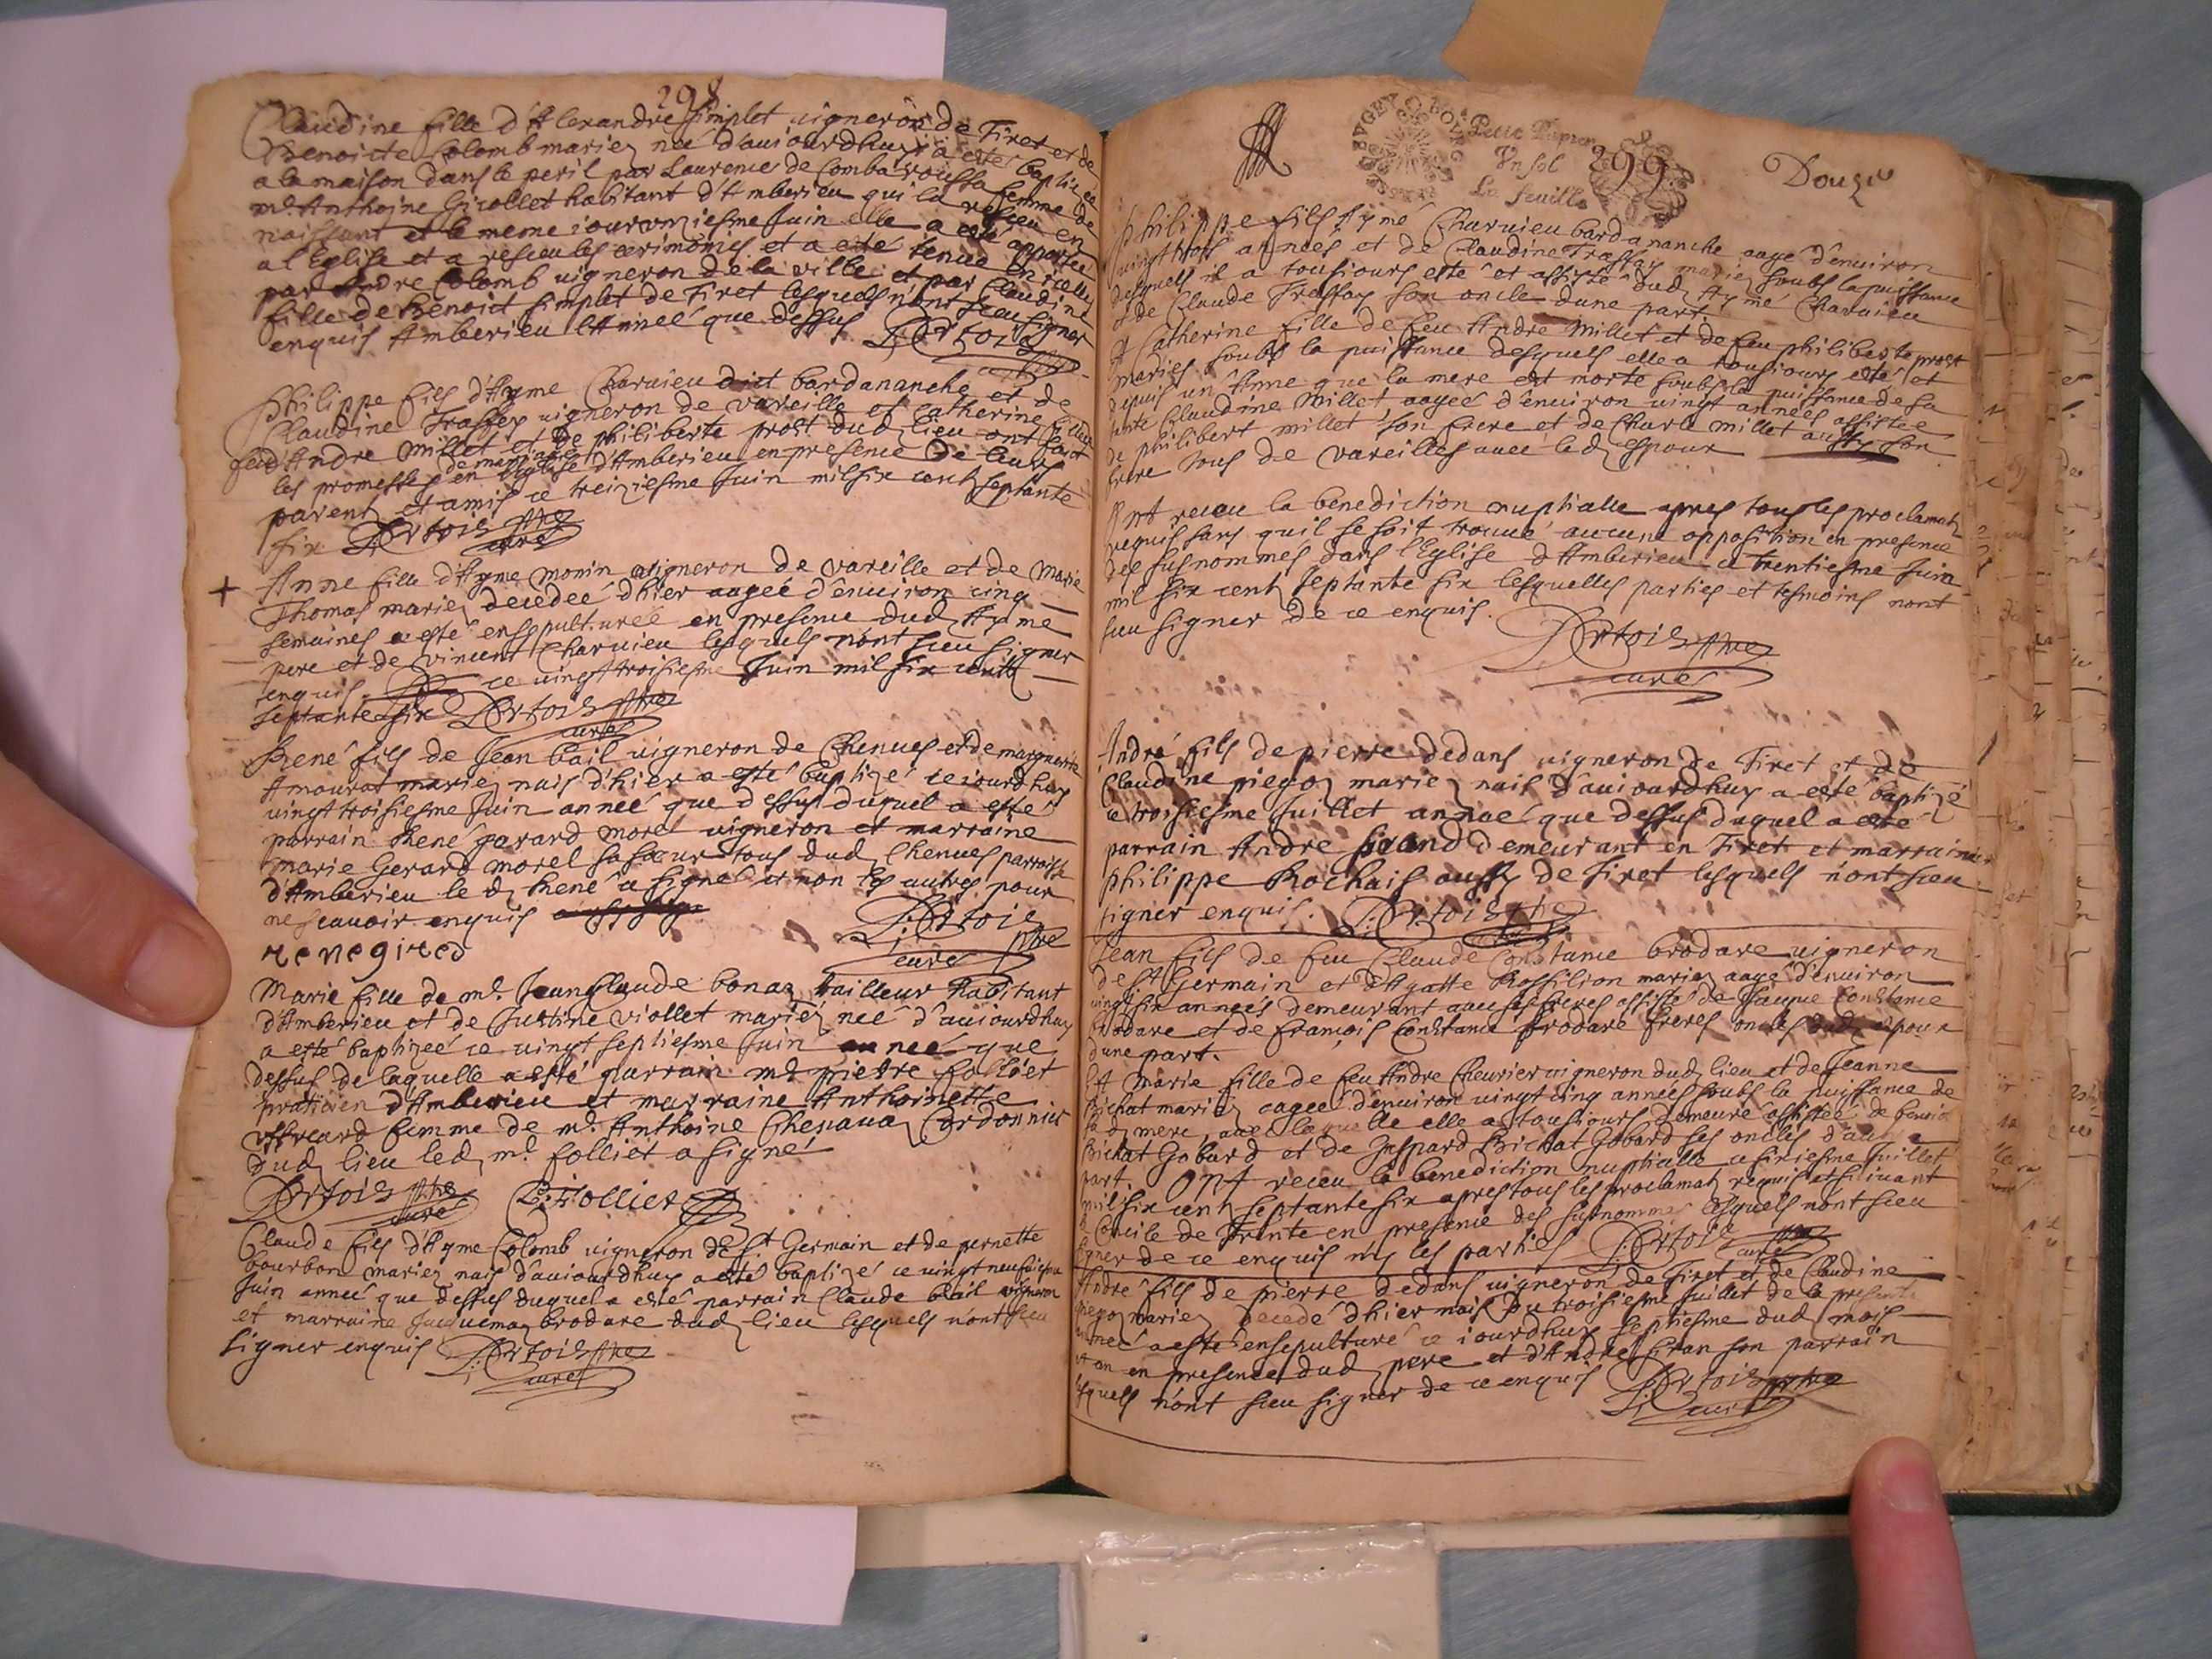 298
Claudine fille d'Alexandre Simplet vigneron de Tiret et de
Benoicte Colomb mariez née d'auiourdhuy a esté baptizée
a la maison dans le peril par Laurence de Comba roussa femme de
mr. Anthoine Girollet habitant d'Amberieu qui la receu en
naissant et le meme iour onziesme Juin elle a esté apportée
a l'Eglise et a receu les cerimonies et a esté tenue en icelles
par Andre Colomb vigneron de la ville et par Claudine
fille de Benoict Simplet de Tiret lesquels n'ont sceu signer
enquis Amberieu l'Année que dessus
Philippe fils d'Ayme Charuieu dict bardananche et de
Claudine Trassey vigneron de vareille et Catherine fille de
feu d'Andre Millet et de philiberte prost dud lieu ont faict
les promesses de mariage en l'Eglise d'Amberieu en presence de leurs
parents et amis ce treiziesme Juin mil six cents septante
six Dertois ptre curé
+ Anne fille d'Ayme Monin vigneron de vareille et de Marie
Thomas mariez decedée d'hier aagée d'enuiron cinq
semaines a esté ensepulturée en presence dud Ayme
pere et de vincent Charuieu lesquels n'ont sceu signer
enquis ce vingt troisiesme Juin mil six cents
septante six Dertois ptre curé
René fils de Jean bail vigneron de Chenues et de marguerite
Amourat mariez nais d'hier a esté baptizé ce iourdhuy
vingt troisiesme Juin année que dessus duquel a esté
parrain René gerard morel vigneron et marraine
marie Gerard morel sa soeur tous dud Chenues parroisse
d'Amberieu led René a signé et non les autres pour
ne scauoir enquis Dertois
renegired ptre curé
Marie fille de mr. Jean Claude bonaz tailleur habitant
d'Amberieu et de Justine viollet mariez née d'auiourdhuy
a esté baptizée ce vingt septiesme Juin année que
dessus de laquelle a esté parrain mr pierre folliet
praticien d'Amberieu et marraine Anthoinette
femme de mr. Anthoine Chenauaz Cordonnier
dud lieu led mr folliet a signé
Dertois ptre curé Folliet
Claude fils d'Ayme Colomb vigneron de St Germain et de pernette
bourbon mariez nais d'auiourdhuy a esté baptizé ce vingt neufuiesme
Juin année que dessus duquel a esté parrain Claude bail vigneron
et marraine Jaquemaz brodare dud lieu lesquels n'ont sceu
signer enquis Dertois ptre curé
BVGEY
Petit Papier
Vn sol
La feuille
299
Douze
Philippe fils Aymé Charuieu bardananche aagé d'enuiron
vingt trois années et de Claudine Trassey mariez soubs la puissance
desquels il a tousiours esté et assisté dud Aymé Charuieu
et de Claude Trassay son oncle dune part
Et Catherine fille de feu Andre Millet et de feu philiberte prost
mariés soubs la puissance desquels elle a tousiours esté et
depuis un Anne que la mere est morte soubs la puissance de sa
tante Claudine Millet aagée d'enuiron vingt années assistée
de philibert millet son frere et de Charle millet aussy son
frere tous de vareilles auec led espoux
Ont receu la benediction nuptialle apres tous les proclamats
requis sans quil se soit trouué aucune opposition en presence
des susnommés dans l'Eglise d'Amberieu ce trentiesme Juin
mil six cents septante six lesquelles parties et tesmoins n'ont
sceu signer de ce enquis.
Dertois ptre
curé
André fils de pierre dedans vigneron de Tiret et de
Claudine piegoz mariez nais d'auiourdhuy a esté baptizé
ce troisiesme Juillet année que dessus duquel a esté
parrain Andre demeurant en Tiret et marraine
philippe Rochais aussy de Tiret lesquels n'ont sceu
signer enquis. Dertois ptre
Jean fils de feu Claude Constance brodare vigneron
de St Germain et d'Agatte Rossilion mariez aagé d'enuiron
vingt six années demeurant auec ses freres assisté de Jaque Constance
brodare et de françois Constance brodare freres oncles dud espoux
dune part.
Et Marie fille de feu Andre Cheurier vigneron dud lieu et de Jeanne
Bichat mariez aagée d'enuiron vingt cinq années soubs la puissance de
sad mere, auec laquelle elle a tousiours demeuré assistée de benoit
Bichat Gobard et de Jaspard Bichat Gobard ses oncles d'autre
part. Ont receu la benediction nuptialle ce sixiesme Juillet
mil six cents septante six apres tous les proclamats requis et suiuant
le Concile de Trente en presence des susnommés lesquels n'ont sceu
signer de ce enquis ny les parties Dertois ptre curé
André fils de pierre dedans vigneron de Tiret et de Claudine
piegoz mariez decedé d'hier nais du troisiesme Juillet de la presente
année a esté ensepulturé ce iourdhuy septiesme dud mois
et an en presence dud pere et d'Andre son parrain
lesquels n'ont sceu signer de ce enquis Dertois ptre
curé